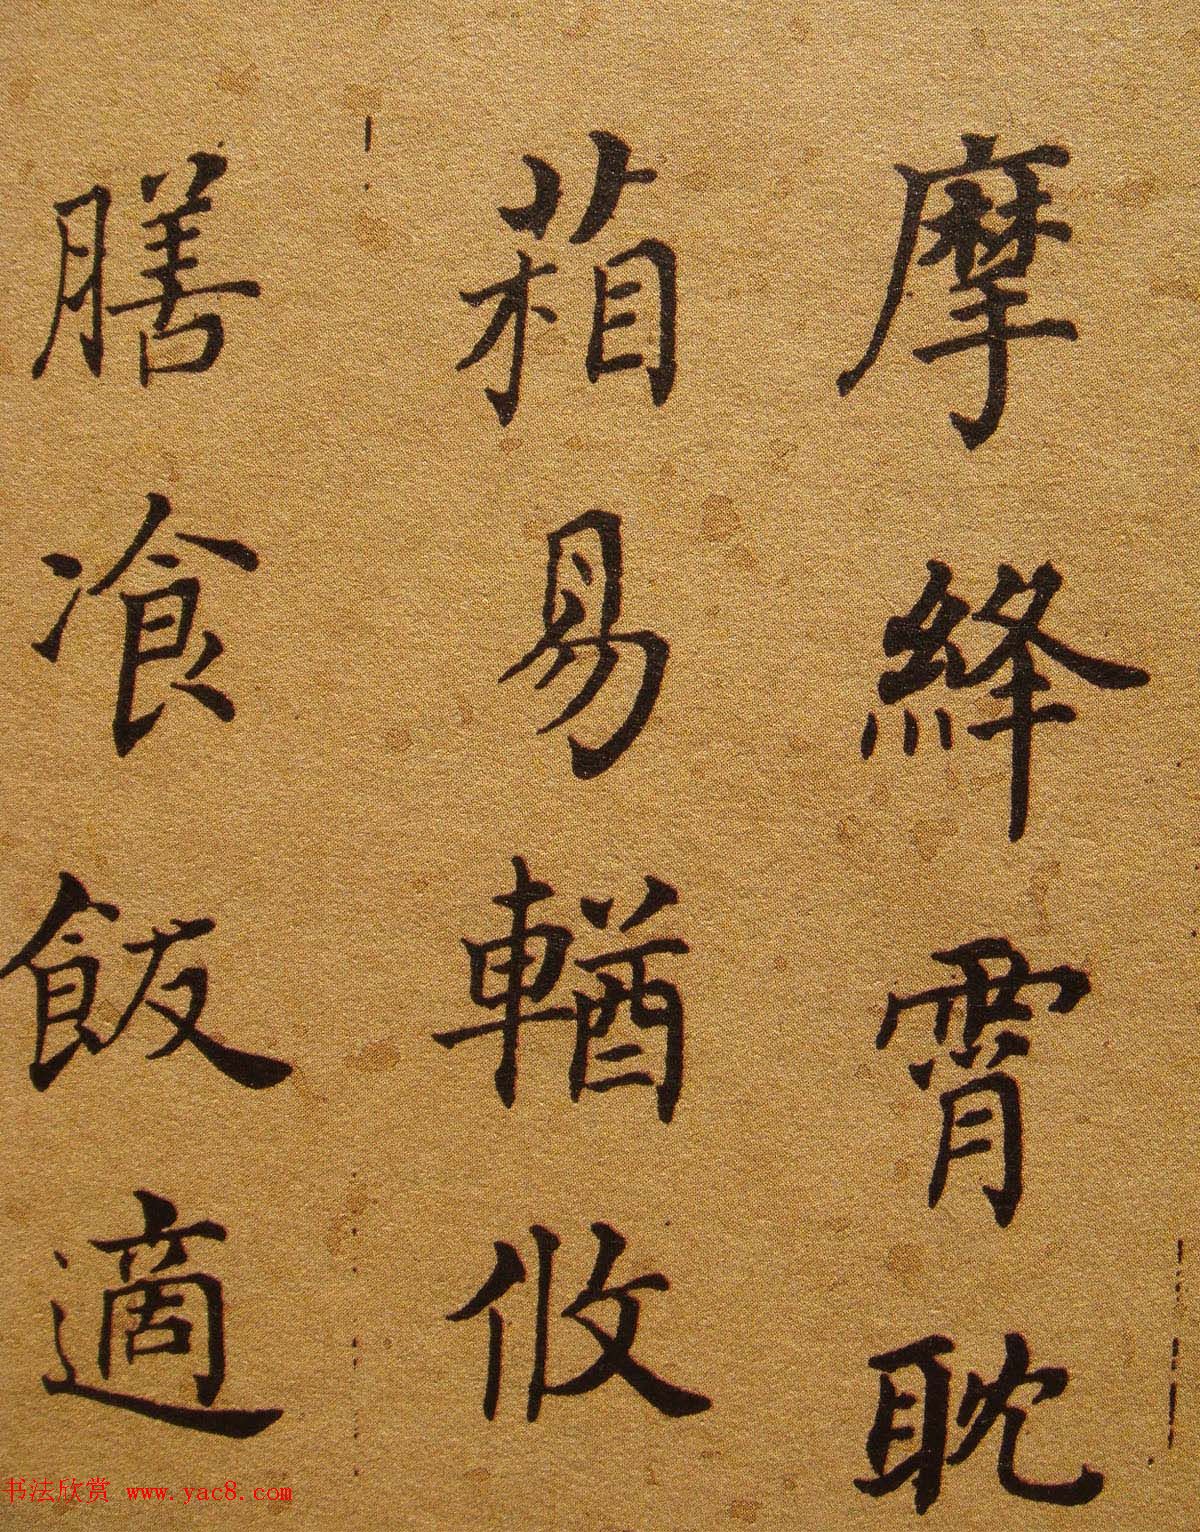 摩絳霄耽
葙易輶攸
膳飡飯適
书法欣赏 www.yac8.com